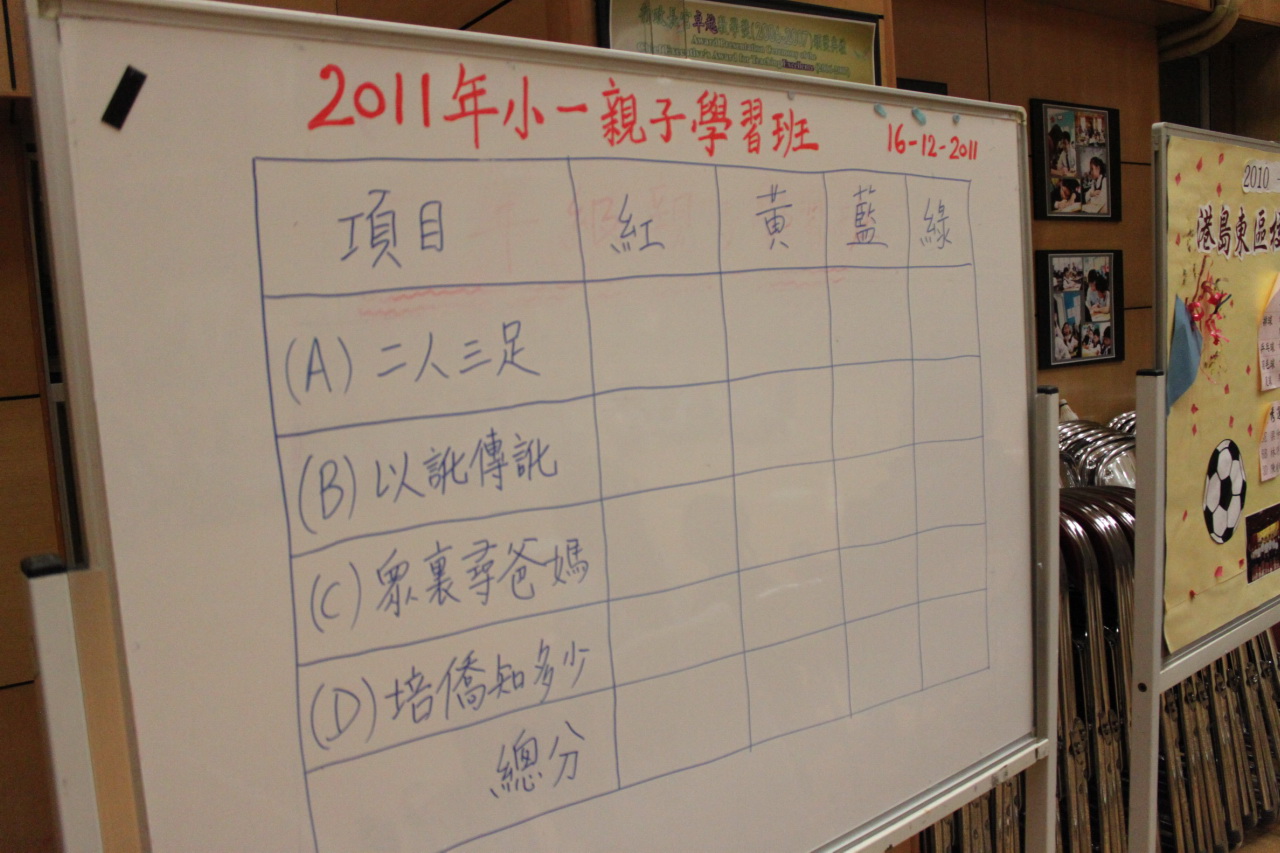 Award Presentation Ceremony of the
Chief Executive's Award for Teaching Excellence
2011年小一親子學習班 16-12-2011
項目 紅 黃 藍 綠
(A) 二人三足
(B) 以訛傳訛
(C) 眾裏尋爸媽
(D) 培僑知多少
總分
2010
港島東區